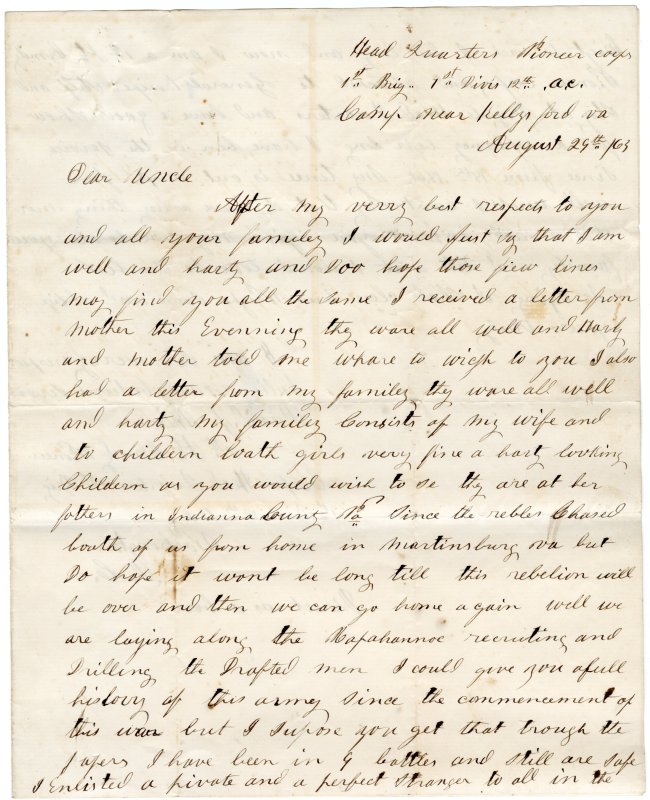 Head Quarters Pioneer corps
1st Brig. 1st Divis 12th. ac.
Camp near Kellys ford va
August 29th /63
Dear Uncle
After my verry best respects to you
and all your familey I would just sy that I am
well and harty and Doo hope those fiew lines
may find you all the same I received a letter from
Mother this Evenning they ware all well and Harty
and Mother told me whare to to you I also
had a letter from my familey they ware all well
and harty my familey Consists of my wife and
to childern boath girls very fine a harty looking
Childern as you would wish to se they are at her
fotters in Indianna County Pa Since the rebles Chased
boath of us from home in Martinsburg va but
Do hope it wont be long till this rebelion will
be over and then we can go home again well we
are laying along the Rapahannoc recruiting and
Drilling the Drafted men I could give you a full
history of this army Since the commencement of
this war but I Supose you get that trough the
papers I have been in 9 battles and still are safe
I Enlisted a private and a perfect stranger to all in the